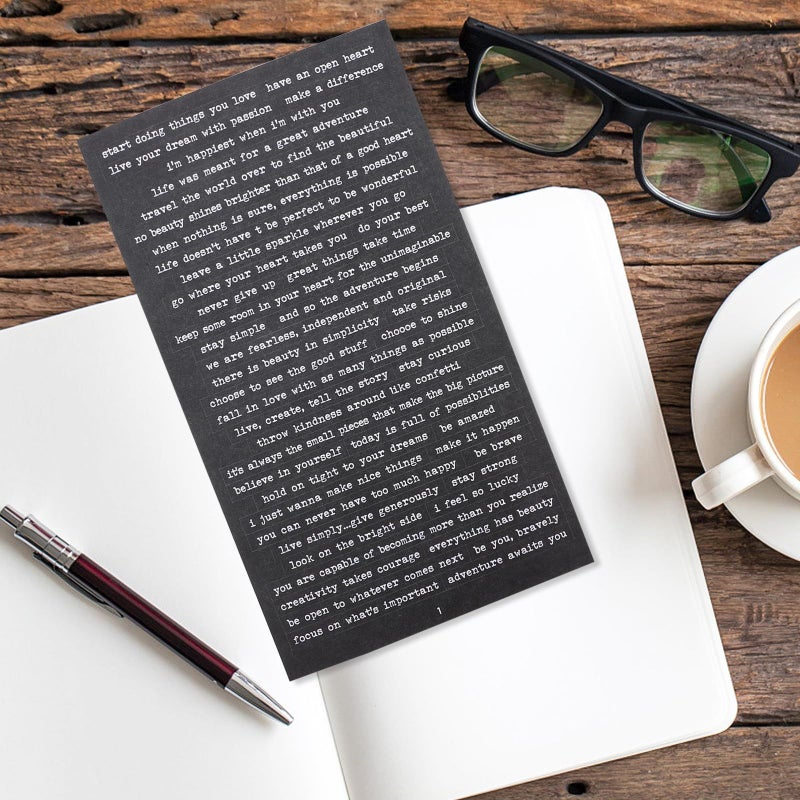 start doing things you love have an open heart
live your dream with passion make a difference
i'm happiest when i'm with you
life was meant for a great adventure
travel the world over to find the beautiful
no beauty shines brighter than that of a good heart
when nothing is sure, everything is possible
life doesn't have t be perfect to be wonderful
leave a little sparkle wherever you go
go where your heart takes you do your best
never give up great things take time
keep some room in your heart for the unimaginable
stay simple and so the adventure begins
we are fearless, independent and original
there is beauty in simplicity take risks
choose to see the good stuff chooce to shine
fall in love with as many things as possible
live, create, tell the story stay curious
throw kindness around like confetti
it's always the small pieces that make the big picture
believe in yourself today is full of possiblities
hold on tight to your dreams be amazed
i just wanna make nice things make it happen
you can never have too much happy be brave
live simply...give generously stay strong
look on the bright side i feel so lucky
you are capable of becoming more than you realize
creativity takes courage everything has beauty
be open to whatever comes next be you, bravely
focus on what's important adventure awaits you
1